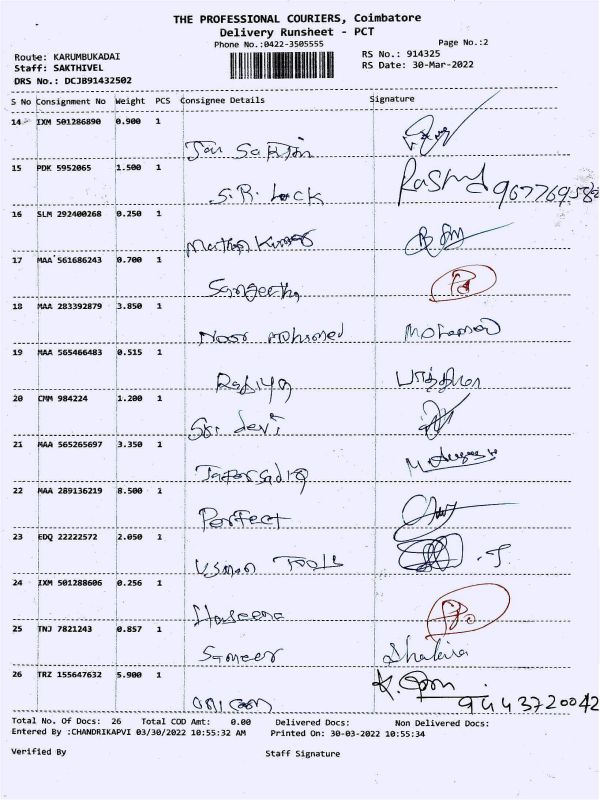 THE PROFESSIONAL COURIERS, Coimbatore
Delivery Runsheet - PCT
Phone No.:0422-3505555 Page No.:2
Route: KARUMBUKADAI RS No.: 914325
Staff: SAKTHIVEL RS Date: 30-Mar-2022
DRS No.: DCJB91432502
S No Consignment No Weight PCS Consignee Details Signature
14 IXM 501286890 0.900 1
15 PDK 5952065 1.500 1
S.R. Lock Rashid
16 SLM 292400268 0.250 1
Mathan Kumar
17 MAA 561686243 0.700 1
Sangeetha
18 MAA 283392879 3.850 1
Noor Mohamed Mohamed
19 MAA 565466483 0.515 1
Rabiya
20 CMM 984224 1.200 1
Sri devi
21 MAA 565265697 3.350 1
Jafarsadiq
22 MAA 289136219 8.500 1
Perfect
23 EDQ 22222572 2.050 1
Usman Tools
24 IXM 501288606 0.256 1
Haseena
25 TNJ 7821243 0.857 1
Sameer Shakira
26 TRZ 155647632 5.900 1
9443720042
Total No. Of Docs: 26 Total COD Amt: 0.00 Delivered Docs: Non Delivered Docs:
Entered By :CHANDRIKAPVI 03/30/2022 10:55:32 AM Printed On: 30-03-2022 10:55:34
Verified By Staff Signature